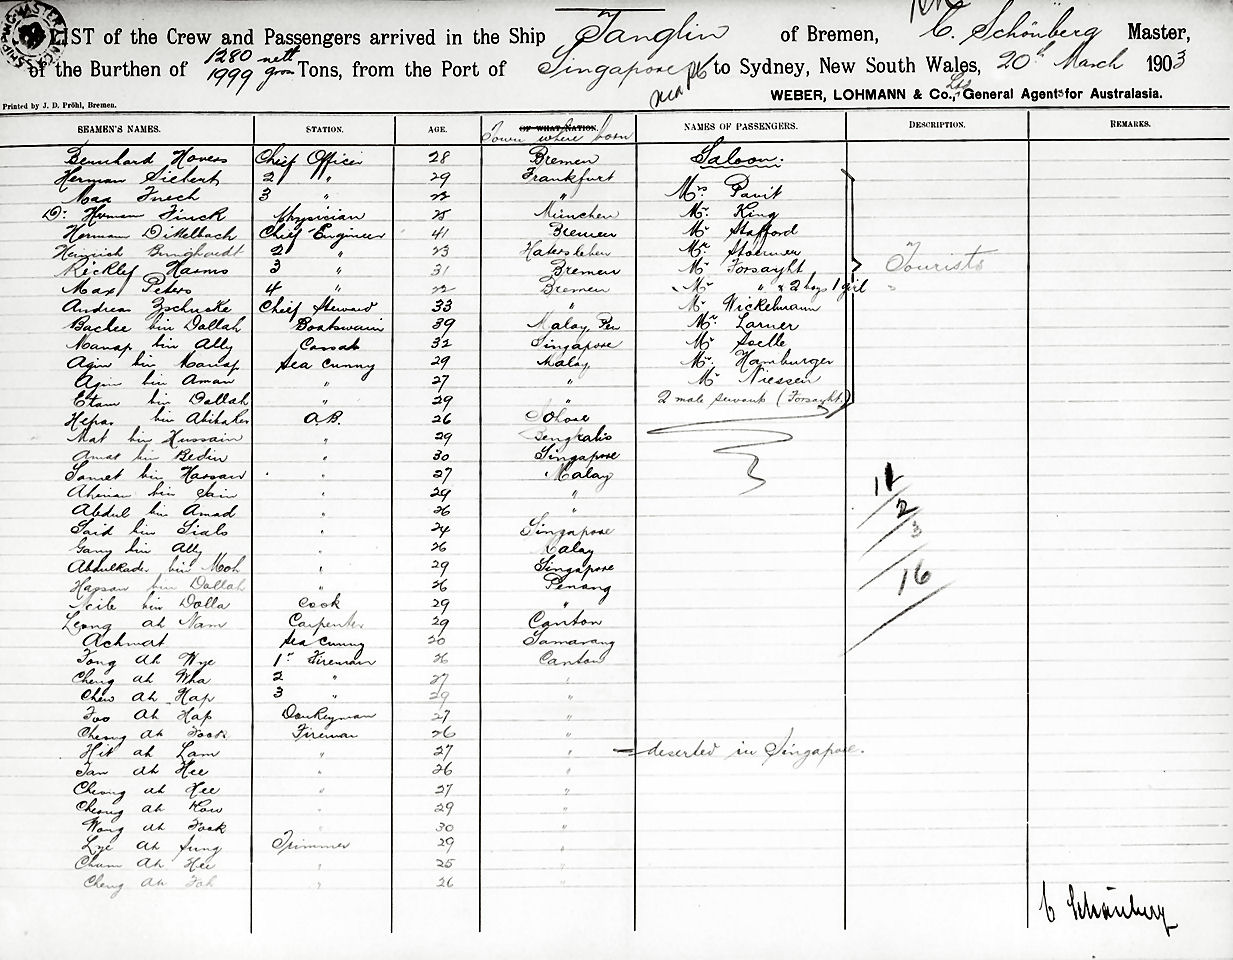 LIST of the Crew and Passengers arrived in the Ship Tanglin of Bremen, C. Schönberg Master,
of the Burthen of 1280 nett 1999 gross Tons, from the Port of Singapore to Sydney, New South Wales, 20th March 1903
Printed by J. D. Pröhl, Bremen.
WEBER, LOHMANN & Co., Ltd General Agents for Australasia.
SEAMEN'S NAMES. STATION. AGE. OF WHAT NATION. Town where born NAMES OF PASSENGERS. DESCRIPTION. REMARKS.
Bernhard Hovers Chief Officer 28 Bremen Saloon.
Herman Siebert 2 " 29 Frankfurt
Max Frech 3 " 22 " Mrs. Pavit
Dr. Herman Finck Physician 25 München Mr. King
Herman Dittelbach Chief Engineer 41 Bremen Mr. Stafford
Heinrich 2 " 23 Hatersleben Mr. Stoermer
Ricklef Harms 3 " 31 Bremen Mr. Forsayht Tourists
Max Peters 4 " 22 Bremen " " 2 boys 1 girl "
Andreas Zschucke Chief Steward 33 " Mr. Wickelmann
Bachee bin Dollah Boatswain 39 Malay Pen Mr. Larner
Manap bin Ally Cassab 32 Singapore Mr. Soelle
Agin bin Manap Sea Cunny 29 Malay Mr. Hamburger
Agin bin Aman " 27 " Mr. Niessen
Etam bin Dollah " 29 " 2 male servants (Forsayht.)
bin Abibaker A.B. 26 Johore
Mat bin Hussain " 29 Bengkalis
Amat bin Bedin " 30 Singapore
Samet bin Hassan " 27 Malay
bin Sain " 29 "
Abdul bin Amad " 26 "
Said bin Sials " 24 Singapore
Gany bin Ally " 26 Malay
Abdulkader bin Moh " 29 Singapore
Hassan bin Dollah " 26 Penang
bin Dolla Cook 29 "
Leong ah Nam Carpenter 29 Canton
Achmat Sea Cunny 20 Samarang
Tong Ah Wye 1st Fireman 26 Canton
Cheng ah Wha 2 " 27 "
Chew Ah Hap 3 " 29 "
Foo Ah Hap Donkeyman 27 "
Cheong ah Fook Fireman 26 "
Hit ah Lam " 27 " = deserted in Singapore.
Tan ah Hee " 26 "
Cheong ah Hee " 27 "
Cheong ah Kow " 29 "
Wong ah Fook " 30 "
Lye ah Sung Trimmer 29 "
Chum Ah Hee " 25 "
Cheng ah Fah " 26 "
11
2
3
16
C Schönberg